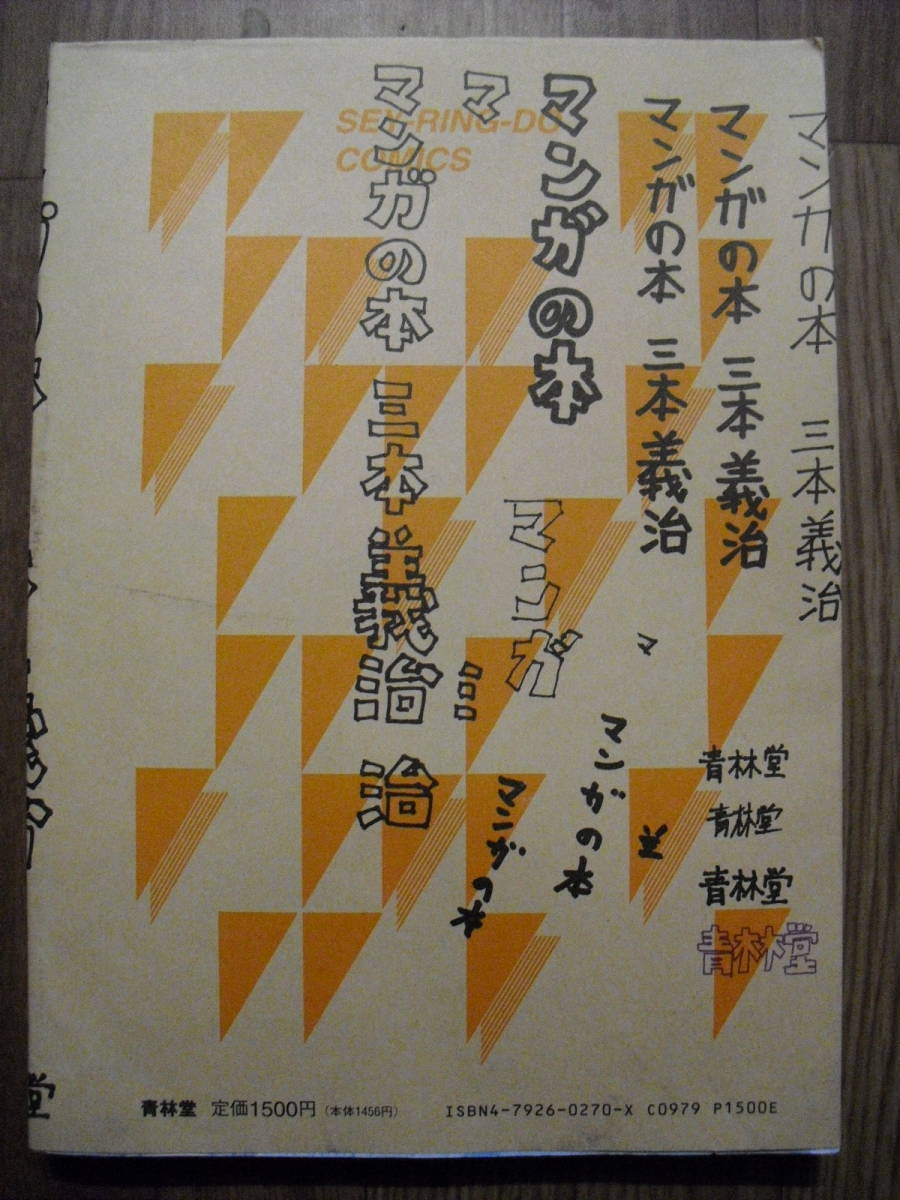 SEY-RING-DO
COMICS
マンガの本 三本義治
マンガの本 三本義治
マンガの本 三本義治
マンガの本
マンガ
マ
マンガの本 三本義治
治
マ
マンガの本
マンガの本
青林堂
青林堂
青林堂
青林堂
堂
青林堂 定価1500円(本体1456円)
ISBN4-7926-0270-X C0979 P1500E